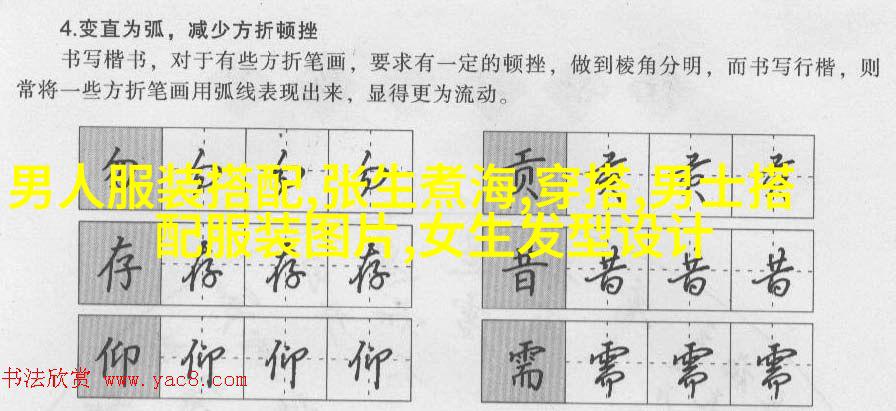 4.变直为弧，减少方折顿挫
书写楷书，对于有些方折笔画，要求有一定的顿挫，做到棱角分明，而书写行楷，则
常将一些方折笔画用弧线表现出来，显得更为流动。
男人服装搭配,张生煮海,穿搭,男士搭
配服装图片,女生发型设计
勿 勿 勿 勿 贡 贡 贡 贡
存 存 存 存 昔 昔 昔 昔
仰 仰 仰 仰 需 需 需 需
书法欣赏 www.yac8.com